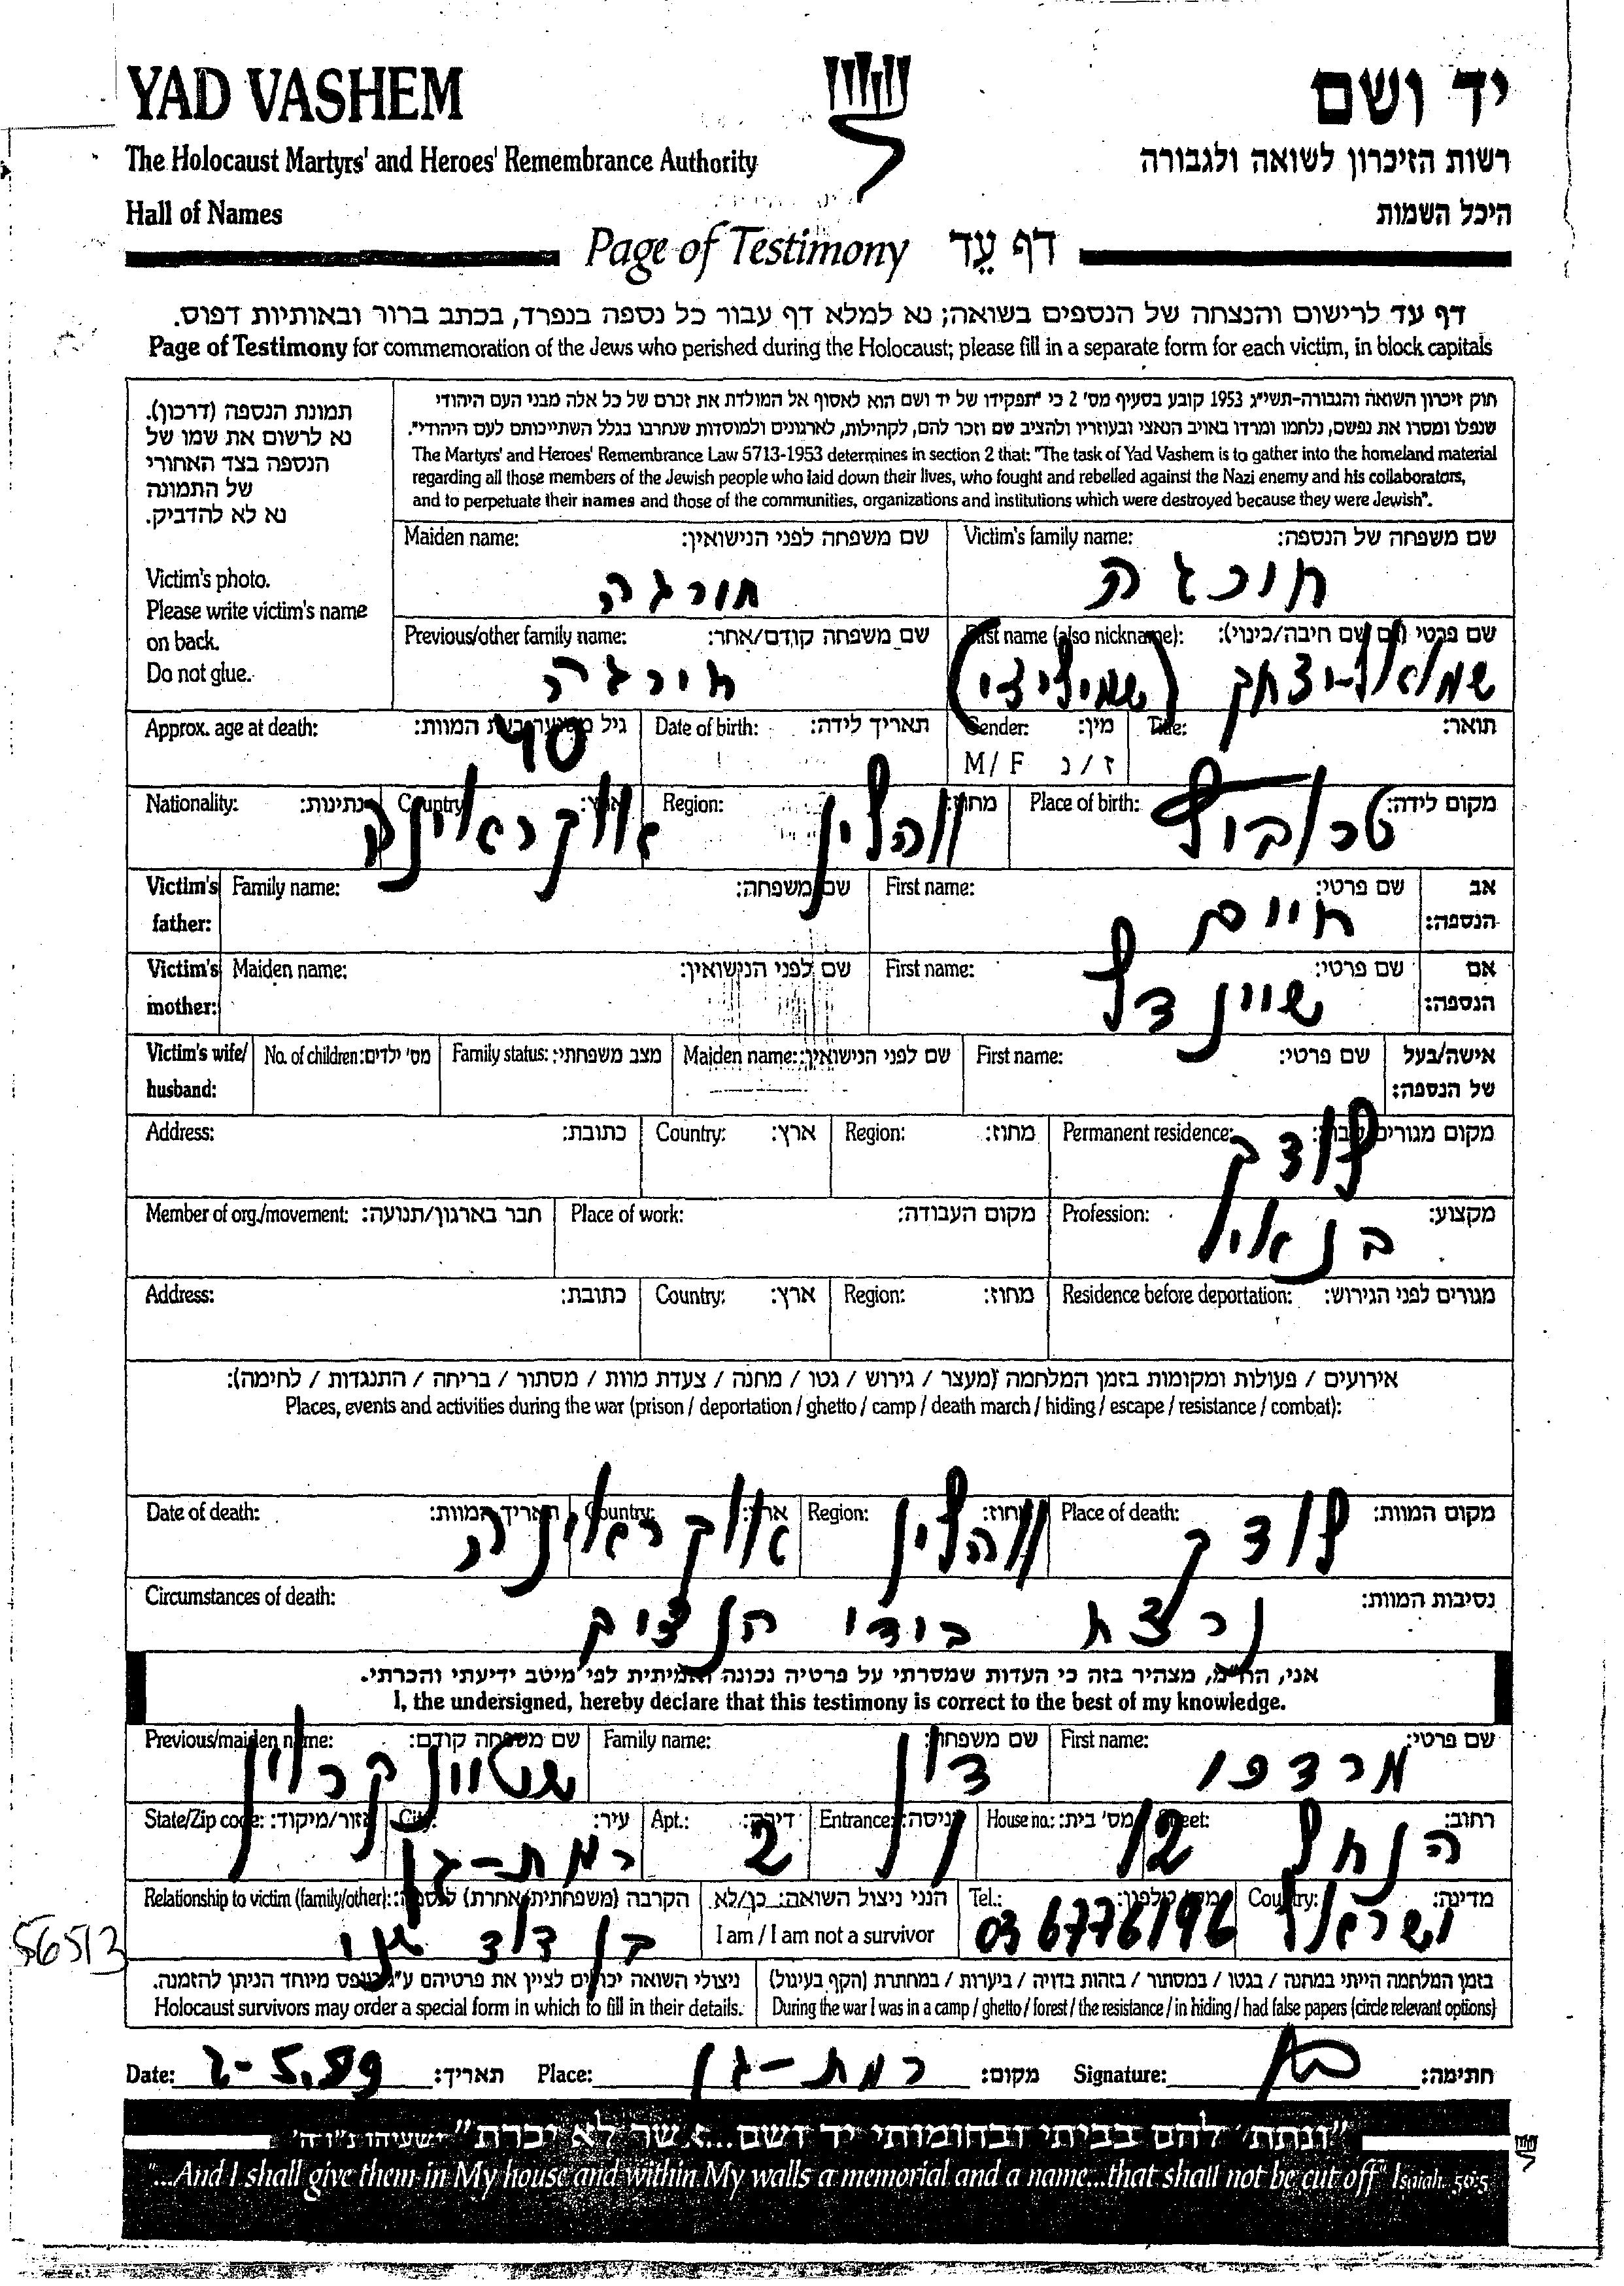 YAD VASHEM
יד ושם
The Holocaust Martyrs' and Heroes' Remembrance Authority
רשות הזיכרון לשואה ולגבורה
Hall of Names
היכל השמות
Page of Testimony דף עֵד
דף עד לרישום והנצחה של הנספים בשואה; נא למלא דף עבור כל נספה בנפרד, בכתב ברור ובאותיות דפוס.
Page of Testimony for commemoration of the Jews who perished during the Holocaust; please fill in a separate form for each victim, in block capitals
תמונת הנספה (דרכון).
נא לרשום את שמו של
הנספה בצד האחורי
של התמונה
נא לא להדביק.
Victim's photo.
Please write victim's name
on back.
Do not glue.
חוק זיכרון השואה והגבורה-תשי"ג 1953 קובע בסעיף מס' 2 כי "תפקידו של יד ושם הוא לאסוף אל המולדת את זכרם של כל אלה מבני העם היהודי
שנפלו ומסרו את נפשם, נלחמו ומרדו באויב הנאצי ובעוזריו ולהציב שם וזכר להם, לקהילות, לארגונים ולמוסדות שנחרבו בגלל השתייכותם לעם היהודי".
The Martyrs' and Heroes' Remembrance Law 5713-1953 determines in section 2 that: "The task of Yad Vashem is to gather into the homeland material
regarding all those members of the Jewish people who laid down their lives, who fought and rebelled against the Nazi enemy and his collaborators,
and to perpetuate their names and those of the communities, organizations and institutions which were destroyed because they were Jewish".
Victim's family name: שם משפחה של הנספה:
Maiden name: שם משפחה לפני הנישואין:
First name (also nickname): שם פרטי (גם שם חיבה/כינוי):
שמואל-יצחק
Previous/other family name: שם משפחה קודם/אחר:
Title: תואר:
Gender: מין:
M / F ז / נ
Date of birth: תאריך לידה:
Approx. age at death: גיל משוער בעת המוות:
40
Place of birth: מקום לידה:
Region: מחוז:
ווהלין
Country: ארץ:
אוקראינה
Nationality: נתינות:
Victim's father: אב הנספה:
First name: שם פרטי:
חיים
Family name: שם משפחה:
Victim's mother: אם הנספה:
First name: שם פרטי:
שיינדל
Maiden name: שם לפני הנישואין:
Victim's wife/ husband: אישה/בעל של הנספה:
First name: שם פרטי:
Maiden name: שם לפני הנישואין:
Family status: מצב משפחתי:
No. of children: מס' ילדים:
Permanent residence: מקום מגורים קבוע:
לודק
Region: מחוז:
Country: ארץ:
Address: כתובת:
Profession: מקצוע:
Place of work: מקום העבודה:
Member of org./movement: חבר בארגון/תנועה:
Residence before deportation: מגורים לפני הגירוש:
Region: מחוז:
Country: ארץ:
Address: כתובת:
אירועים / פעולות ומקומות בזמן המלחמה (מעצר / גירוש / גטו / מחנה / צעדת מוות / מסתור / בריחה / התנגדות / לחימה):
Places, events and activities during the war (prison / deportation / ghetto / camp / death march / hiding / escape / resistance / combat):
Place of death: מקום המוות:
לודק
Region: מחוז:
ווהלין
Country: ארץ:
אוקראינה
Date of death: תאריך המוות:
Circumstances of death: נסיבות המוות:
נרצח בידי הנצים
אני, הח"מ, מצהיר בזה כי העדות שמסרתי על פרטיה נכונה ואמיתית לפי מיטב ידיעתי והכרתי.
I, the undersigned, hereby declare that this testimony is correct to the best of my knowledge.
First name: שם פרטי:
מרדכי
Family name: שם משפחה:
Previous/maiden name: שם משפחה קודם:
Street: רחוב:
הנחל
House no.: מס' בית:
12
Entrance: כניסה:
Apt.: דירה:
2
City: עיר:
רמת-גן
State/Zip code: אזור/מיקוד:
Country: מדינה:
ישראל
Tel.: מס' טלפון:
03 6776196
הנני ניצול השואה: כן/לא
I am / I am not a survivor
Relationship to victim (family/other): הקרבה (משפחתית/אחרת) לנספה:
בן דוד שני
56513
בזמן המלחמה הייתי במחנה / בגטו / במסתור / בזהות בדויה / ביערות / במחתרת (הקף בעיגול)
During the war I was in a camp / ghetto / forest / the resistance / in hiding / had false papers (circle relevant options)
ניצולי השואה יכולים לציין את פרטיהם ע"ג טופס מיוחד הניתן להזמנה.
Holocaust survivors may order a special form in which to fill in their details.
Date: 2-5.89 תאריך: Place: רמת-גן מקום: Signature: חתימה:
"ונתתי להם בביתי ובחומותי יד ושם...אשר לא יכרת" ישעיהו נ"ו ה'
"...And I shall give them in My house and within My walls a memorial and a name...that shall not be cut off" Isaiah. 56:5